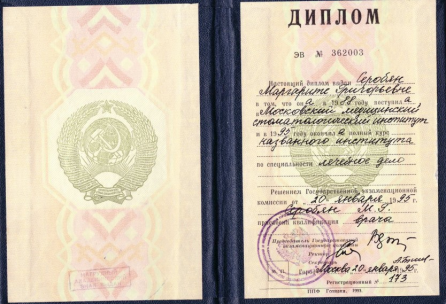 ДИПЛОМ
ЭВ № 362003
Настоящий диплом выдан Серобян
Маргарите Григорьевне
в том, что она в 1988 поступила в
Московский медицинский
стоматологический институт
и в 1995 году окончила полный курс
названного института
по специальности лечебное дело
Решением Государственной экзаменационной
комиссии от 20 января 1995 г.
Серобян М. Г.
присвоена квалификация врача
Председатель Государственной
экзаменационной комиссии
Ректор
Секретарь
Город Москва 20 января 95 г.
Регистрационный № 173